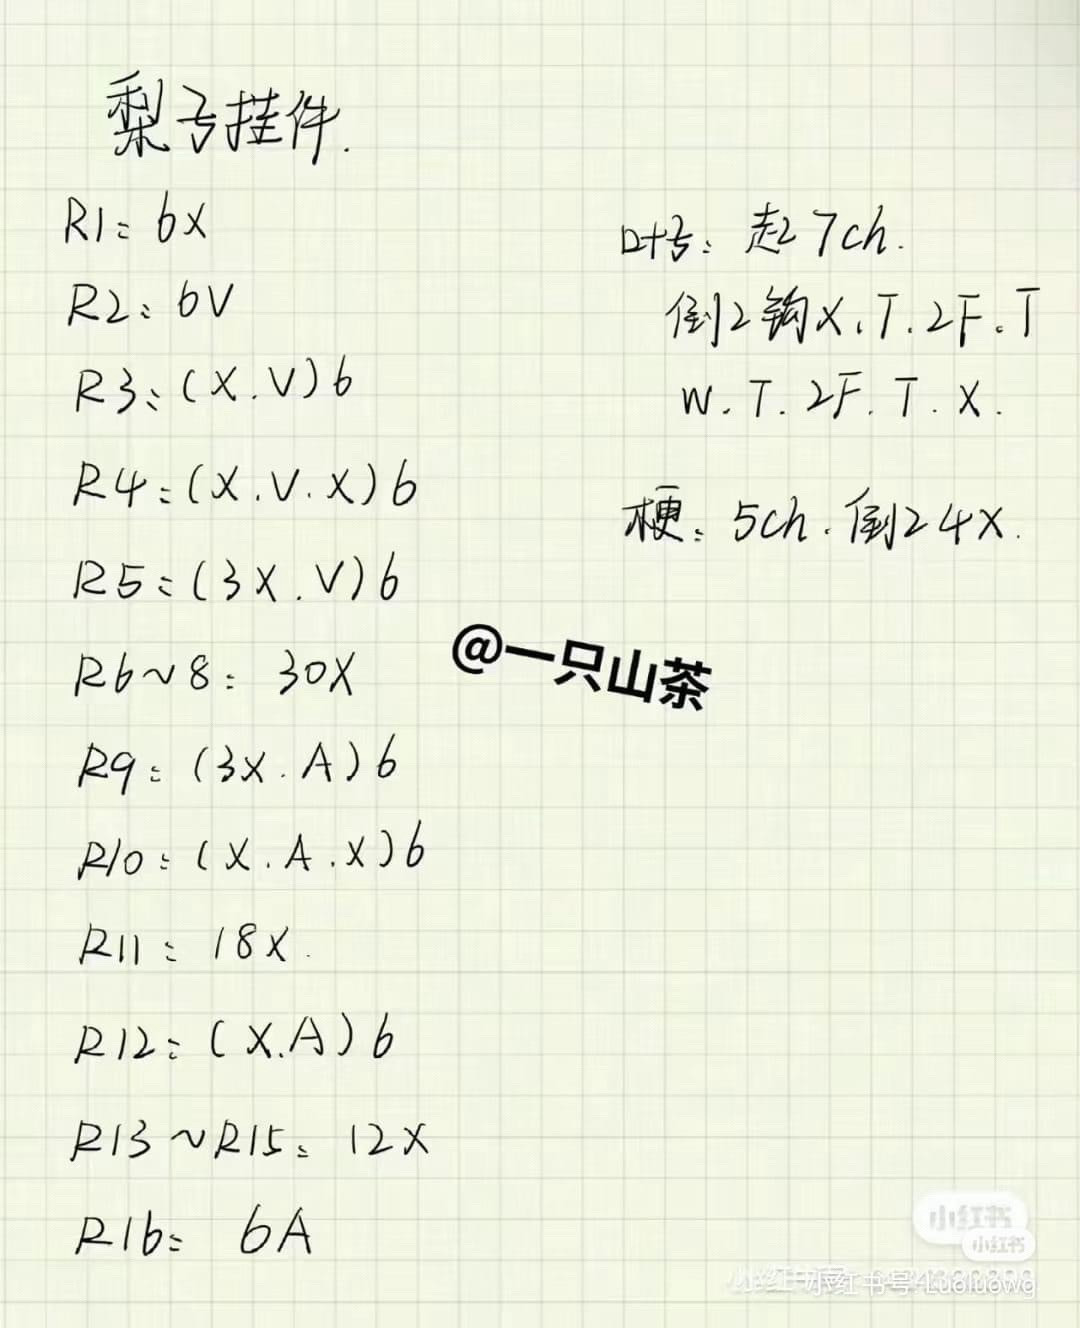 梨子挂件.
R1: 6X
R2: 6V
R3: (X.V)6
R4: (X.V.X)6
R5: (3X.V)6
R6~8: 30X
R9: (3X.A)6
R10: (X.A.X)6
R11: 18X.
R12: (X.A)6
R13~R15: 12X
R16: 6A
叶子: 起7ch.
倒2钩X.T.2F.T
W.T.2F.T.X.
梗: 5ch.倒2 4X.
@一只山茶
小红书
小红书
小红书号